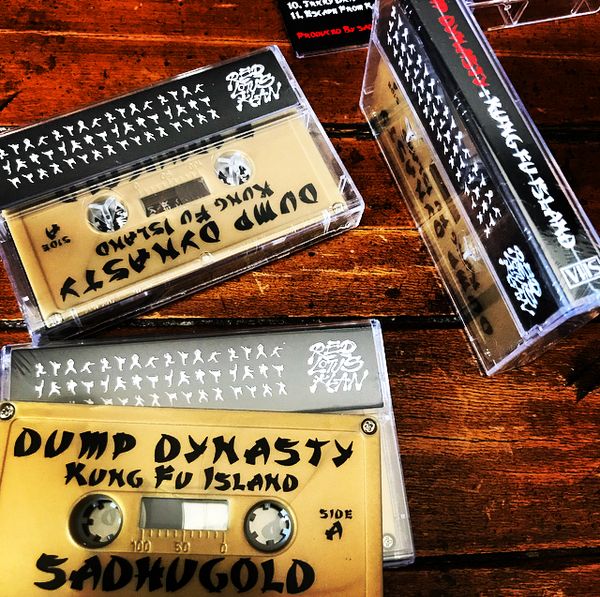 10. Jerry
11. Escape From
Produced By
RED
LOTUS
KLAN
DUMP DYNASTY
KUNG FU ISLAND
SIDE
A
DUMP DYNASTY · KUNG FU ISLAND
VHS
RED
LOTUS
KLAN
RED
LOTUS
KLAN
DUMP DYNASTY
KUNG FU ISLAND
SIDE
A
100 50 0
SADHUGOLD